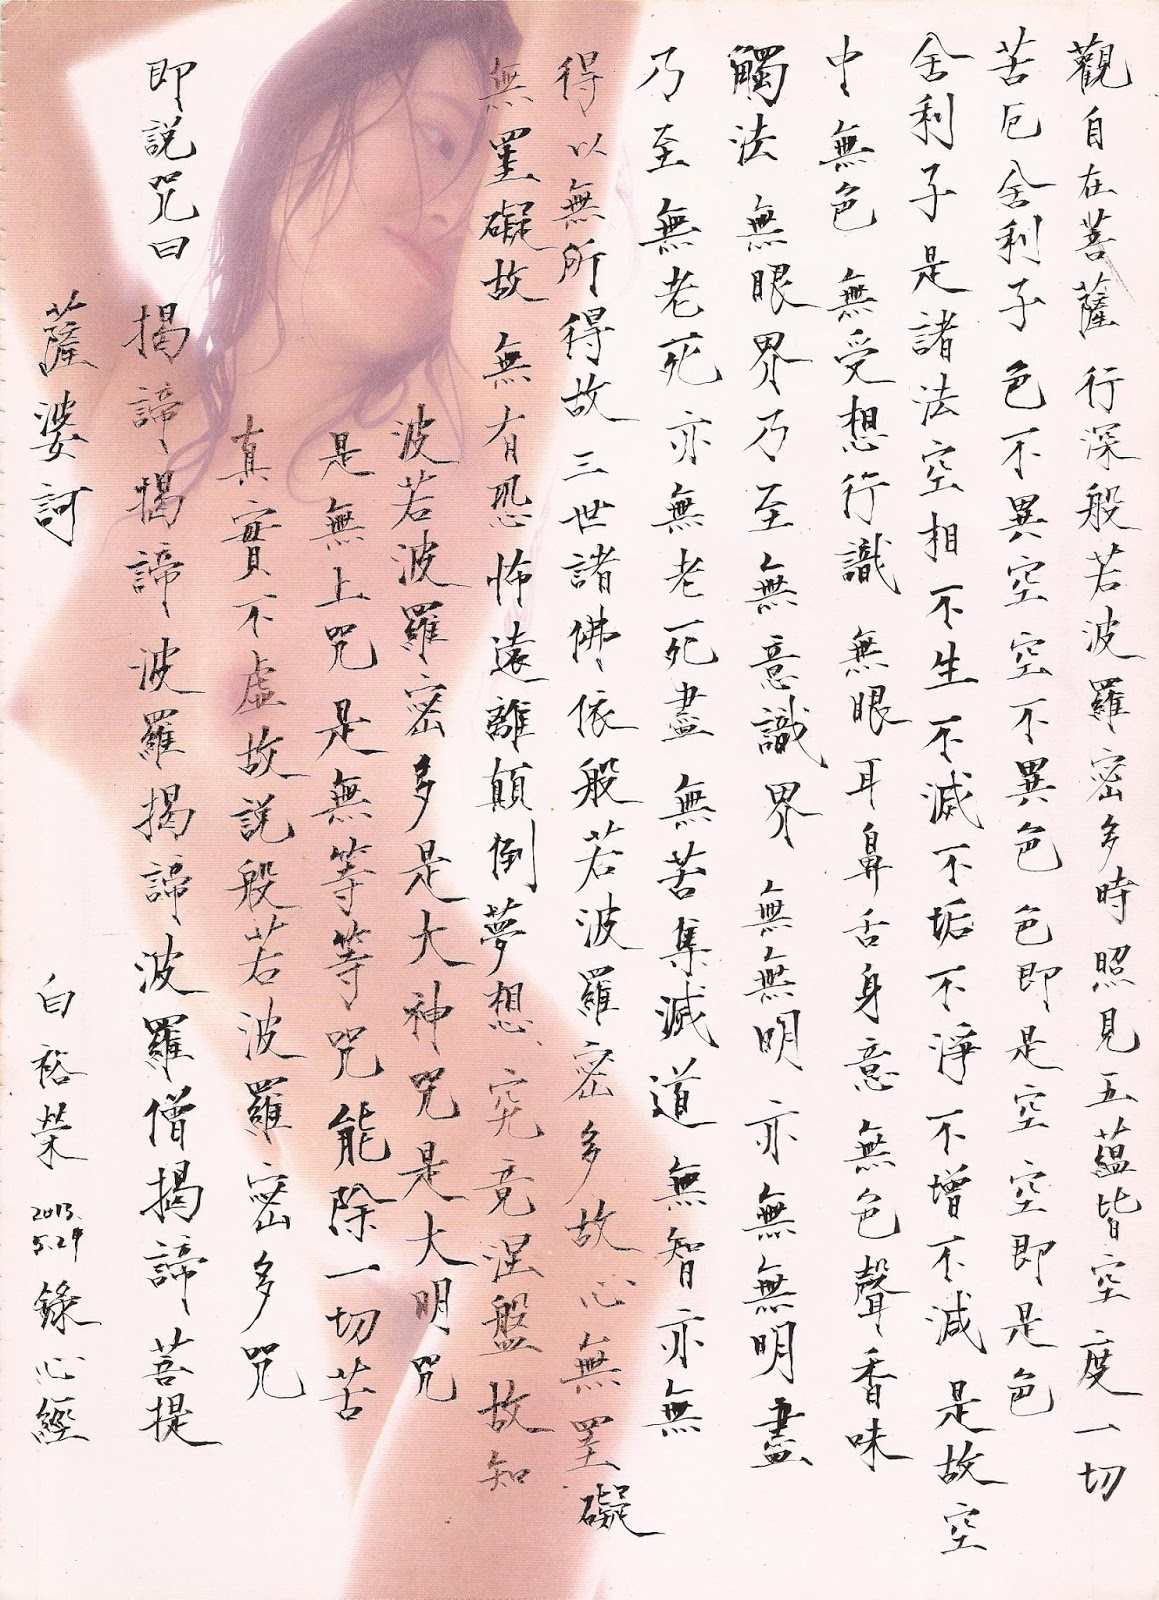 觀自在菩薩行深般若波羅密多時照見五蘊皆空度一切
苦厄舍利子色不異空空不異色色即是空空即是色
舍利子是諸法空相不生不滅不垢不淨不增不減是故空
中無色無受想行識無眼耳鼻舌身意無色聲香味
觸法無眼界乃至無意識界無無明亦無無明盡
乃至無老死亦無老死盡無苦集滅道無智亦無
得以無所得故三世諸佛依般若波羅密多故心無罣礙
無罣礙故無有恐怖遠離顛倒夢想究竟涅盤故知
波若波羅密多是大神咒是大明咒
是無上咒是無等等咒能除一切苦
真實不虛故説般若波羅密多咒
即説咒曰揭諦揭諦波羅揭諦波羅僧揭諦菩提
薩婆訶
白裕榮2013.5.29錄心經